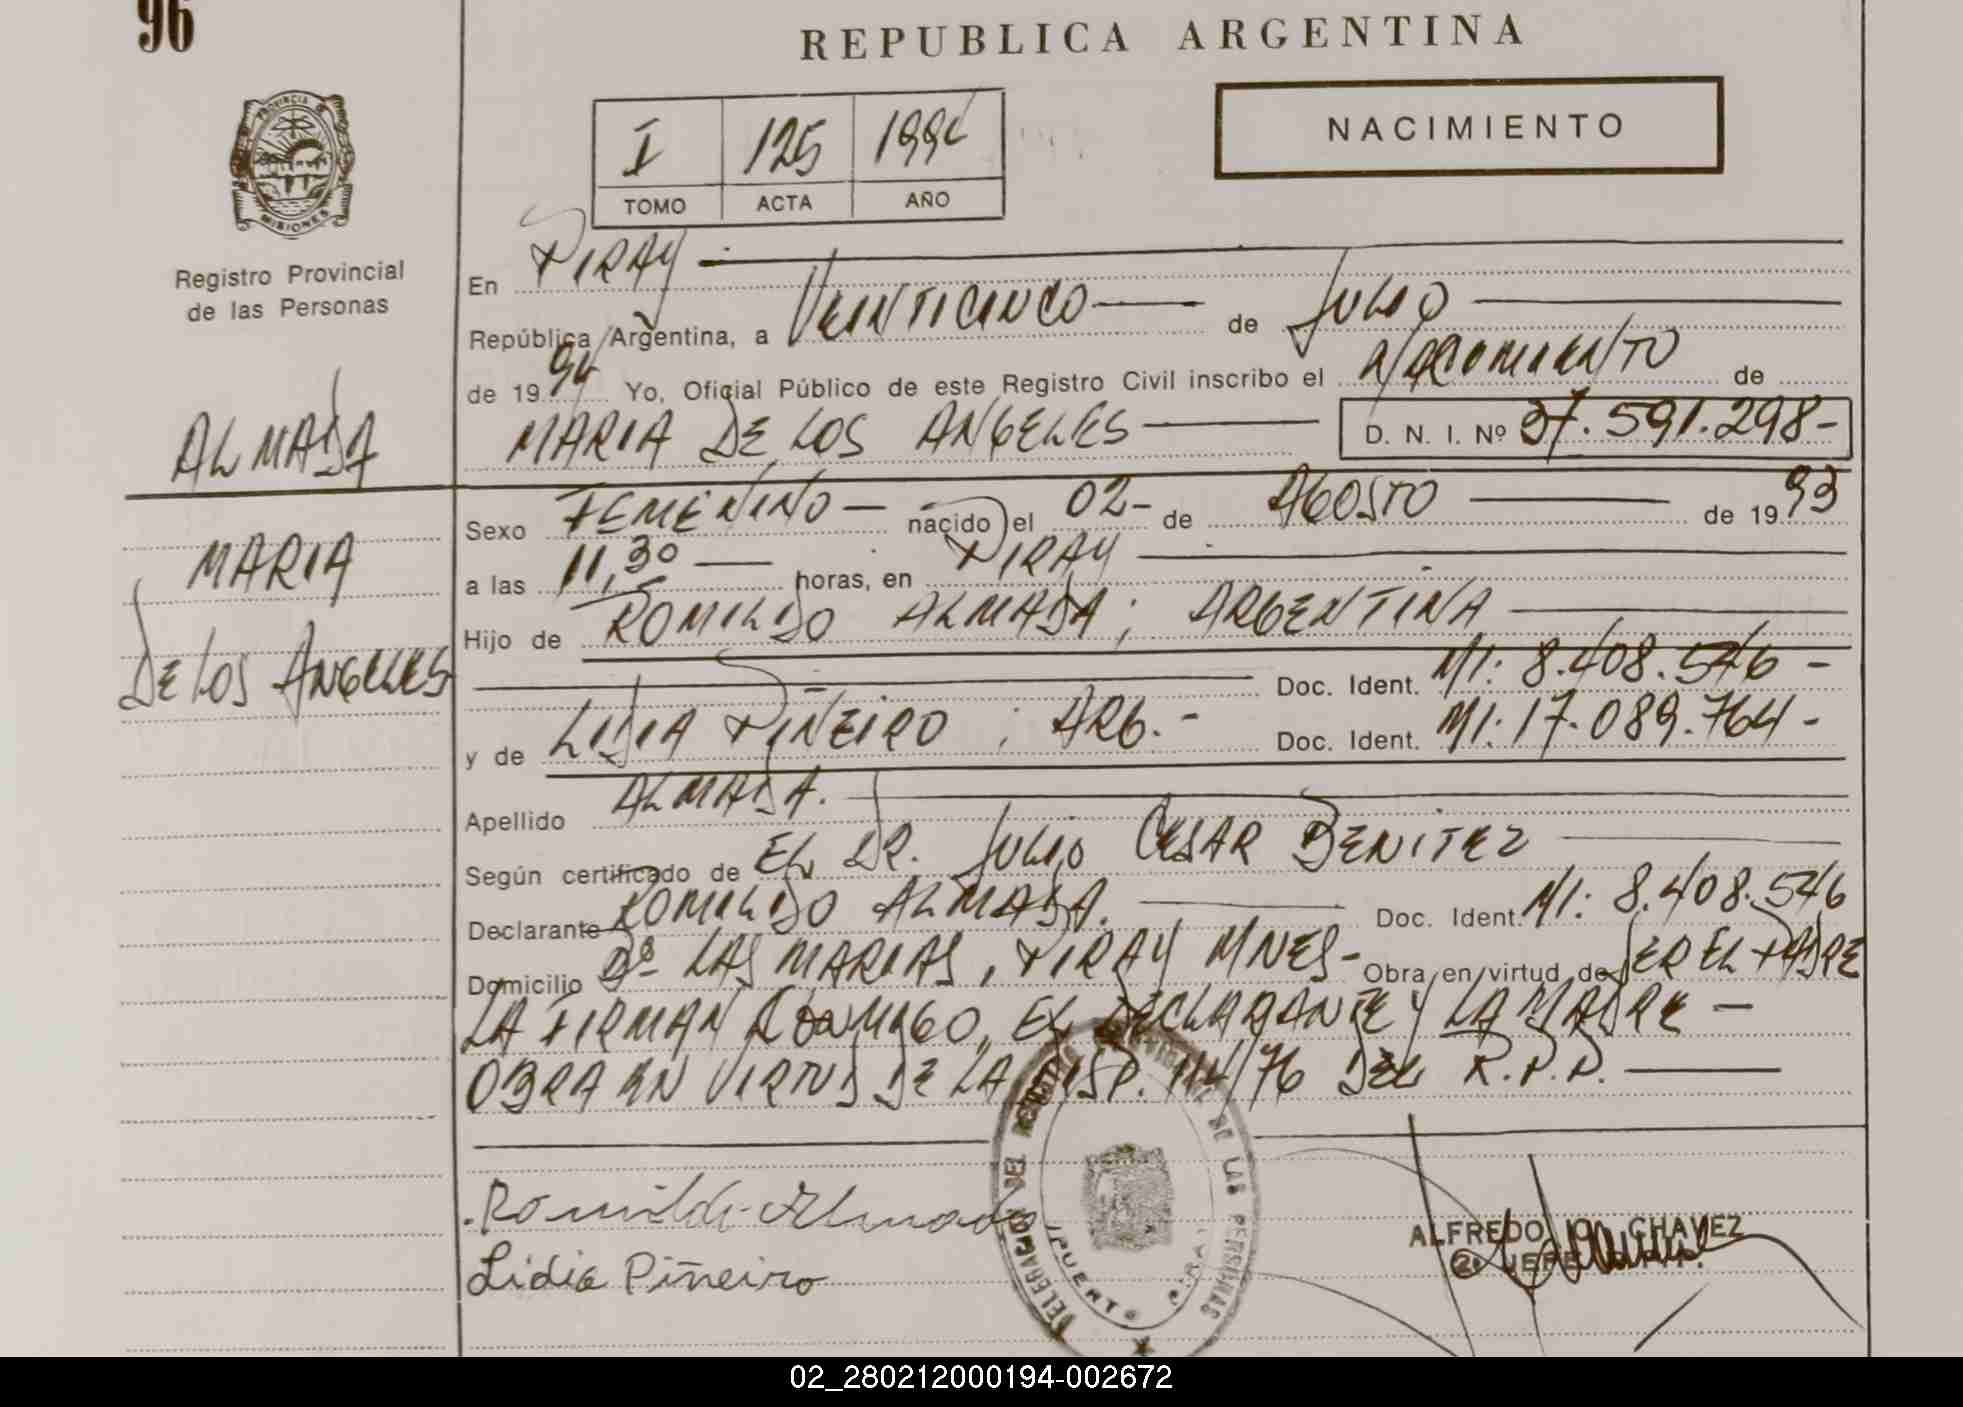 96
REPUBLICA ARGENTINA
NACIMIENTO
I 125 1994
TOMO ACTA AÑO
PROVINCIA DE MISIONES
Registro Provincial
de las Personas
ALMADA
MARIA
DE LOS ANGELES
En PIRAY
República Argentina, a VEINTICINCO de JULIO
de 1994 Yo, Oficial Público de este Registro Civil inscribo el NACIMIENTO de
MARIA DE LOS ANGELES D. N. I. Nº 37.591.298-
Sexo FEMENINO nacido el 02- de AGOSTO de 1993
a las 11,30 horas, en PIRAY
Hijo de ROMILDO ALMADA; ARGENTINA
Doc. Ident. MI: 8.408.546-
y de LIDIA PIÑEIRO; ARG.- Doc. Ident. MI: 17.089.764-
Apellido ALMADA.
Según certificado de EL DR. JULIO CESAR BENITEZ
Declarante ROMILDO ALMADA. Doc. Ident. MI: 8.408.546
Domicilio Bº LAS MARIAS, PIRAY MNES- Obra en virtud de SER EL PADRE
LA FIRMAN CONMIGO, EL DECLARANTE Y LA MADRE -
OBRA EN VIRTUD DE LA DISP. 114/76 DEL R.P.P.
Romildo Almada
Lidia Piñeiro
DELEGACION DEL REGISTRO PROVINCIAL DE LAS PERSONAS
PUERTO PIRAY
ALFREDO CHAVEZ
JEFE
02_280212000194-002672